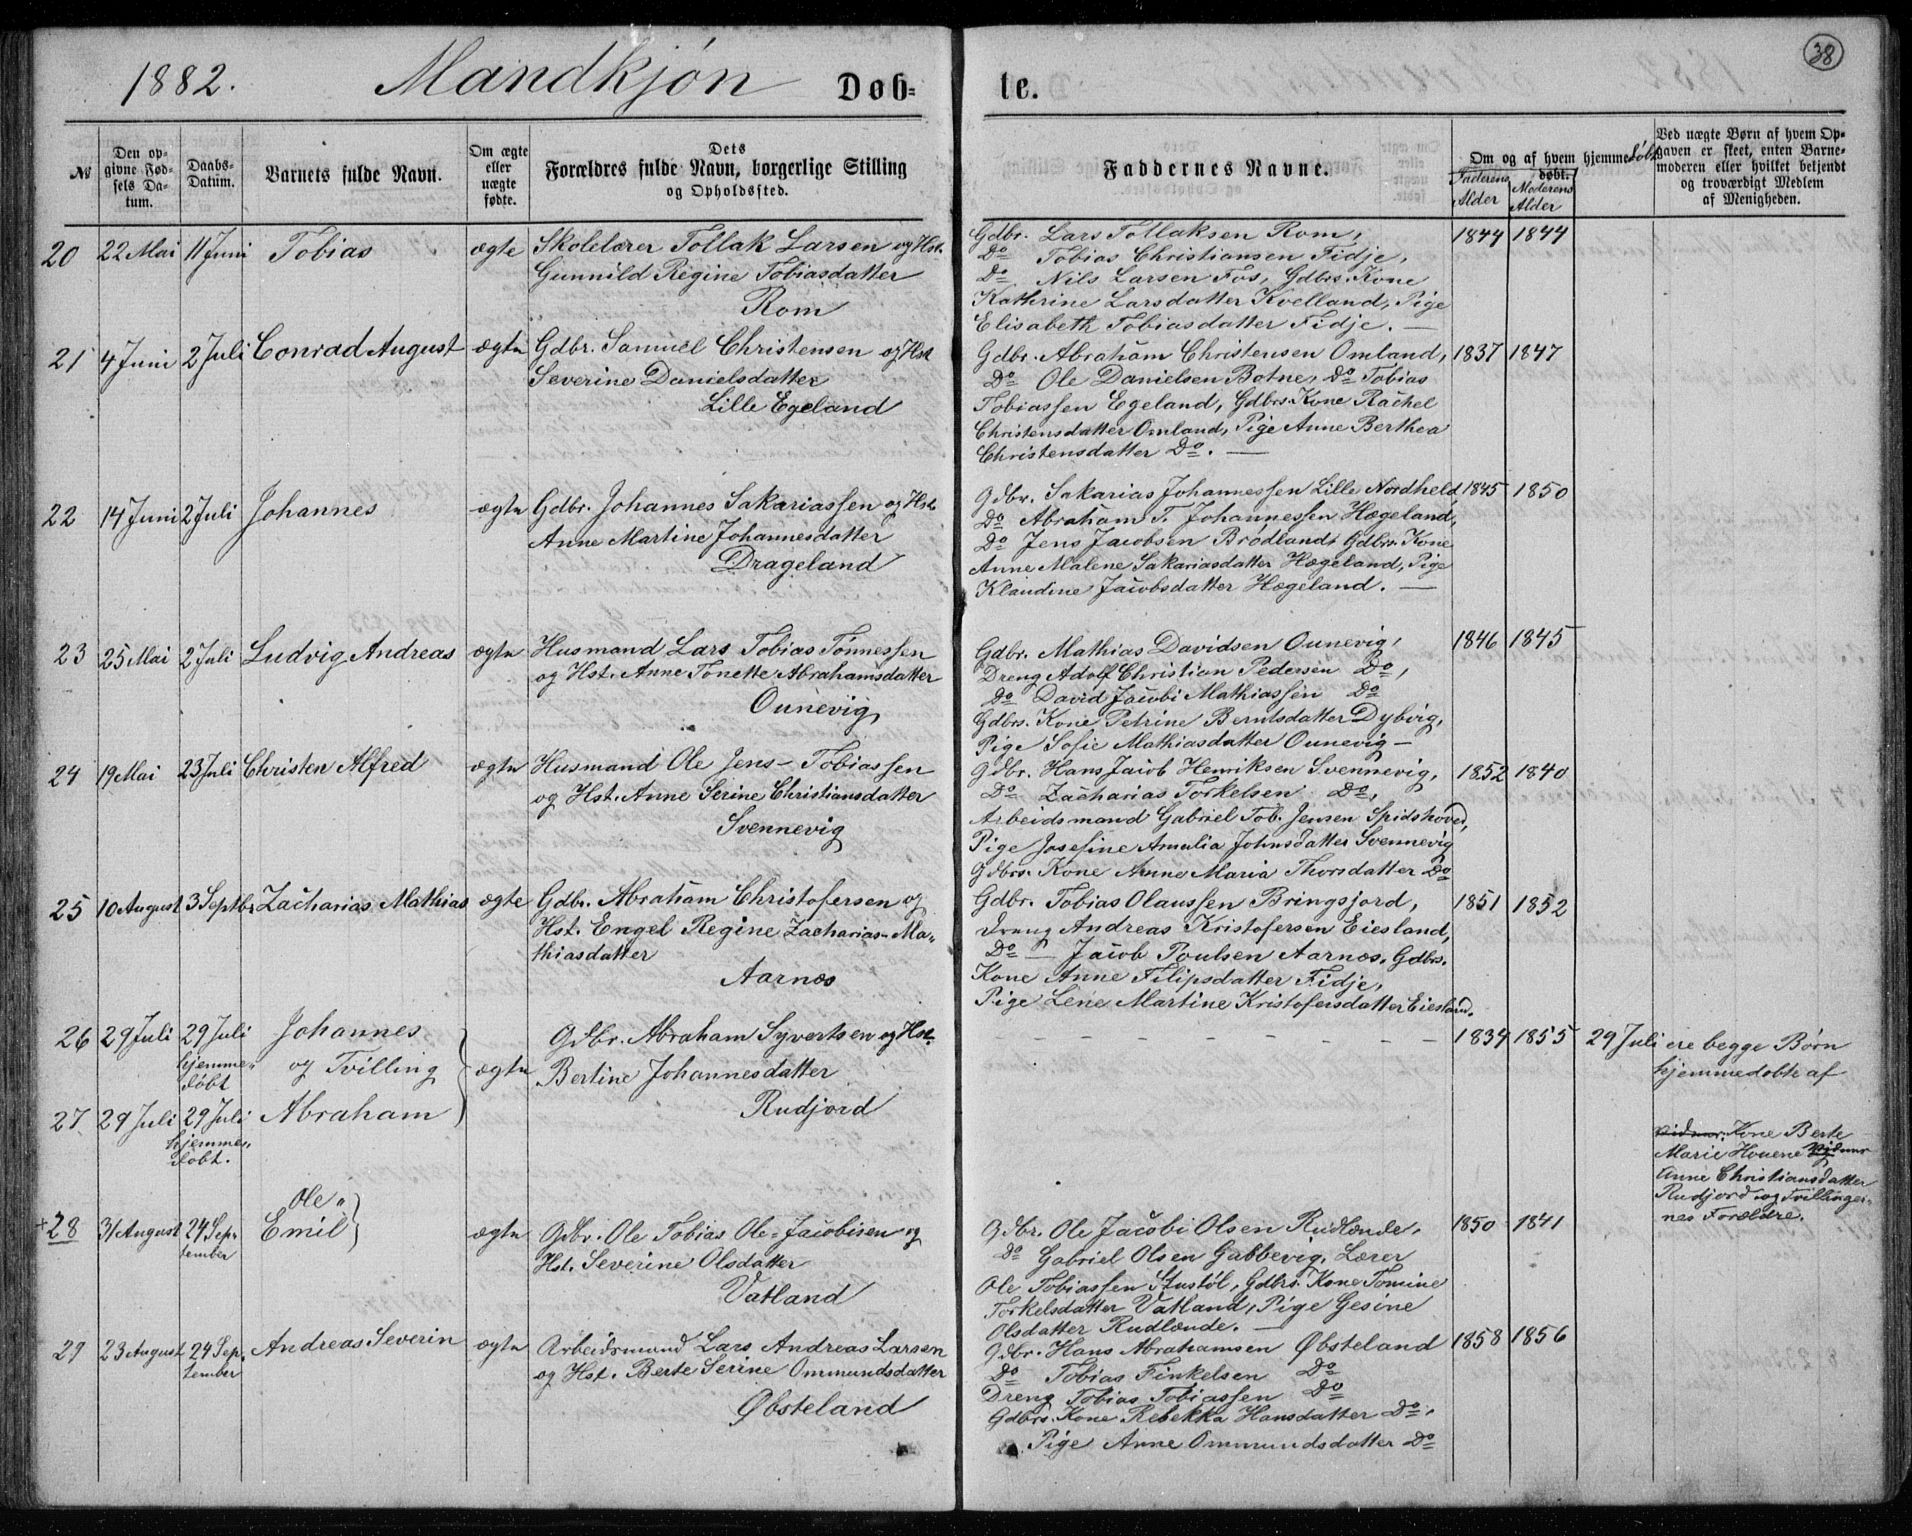 1882. Mandkjøn Døb=
te. 38
№
Den op-
givne Fød-
sels Da-
tum.
Daabs-
Datum.
Barnets fulde Navn.
Om ægte
eller
uægte
fødte.
Dets
Forældres fulde Navn, borgerlige Stilling
og Opholdssted.
Faddernes Navne.
Om og af hvem hjemmedøbt
døbt.
Faderens
Alder
Moderens
Alder
Ved uægte Børn af hvem Op-
gaven er skeet, enten Barne-
moderen eller hvilket bekjendt
og troværdigt Medlem
af Menigheden.
20 22 Mai 11 Juni Tobias ægte
Skolelærer Tollak Larsen og Hst.
Gunnild Regine Tobiasdatter
Rom
Gdbr. Lars Tollaksen Rom,
Do Tobias Christiansen Fidje,
Do Nils Larsen Fos, Gdbrs. Kone
Kathrine Larsdatter Kvelland, Pige
Elisabeth Tobiasdatter Fidje. —
1844 1844
21 4 Juni 2 Juli Conrad August ægte
Gdbr. Samuel Christensen og Hst
Severine Danielsdatter
Lille Egeland
Gdbr. Abraham Christensen Omland,
Do Ole Danielsen Botne, Do Tobias
Tobiassen Egeland, Gdbrs. Kone Rachel
Christensdatter Omland, Pige Anne Berthea
Christensdatter Do. —
1837 1847
22 14 Juni 2 Juli Johannes ægte
Gdbr. Johannes Sakariassen og Hst.
Anne Martine Johannesdatter
Drageland
Gdbr. Sakarias Johannessen Lille Nordheld
Do Abraham T. Johannessen Hægeland,
Do Jens Jacobsen Brødland, Gdbrs. Kone
Anne Malene Sakariasdatter Hægeland, Pige
Klaudine Jacobsdatter Hægeland. —
1845 1850
23 25 Mai 2 Juli Ludvig Andreas ægte
Husmand Lars Tobias Tønnessen
og Hst. Anne Tonette Abrahamsdatter
Ounevig
Gdbr. Mathias Davidsen Ounevig,
Dreng Adolf Christian Pedersen Do,
Do David Jacobi Mathiassen Do
Gdbrs. Kone Petrine Berntsdatter Dybvig,
Pige Sofie Mathiasdatter Ounevig —
1846 1845
24 19 Mai 23 Juli Christen Alfred ægte
Husmand Ole Jens- Tobiassen
og Hst. Anne Serine Christiansdatter
Svennevig
Gdbr. Hans Jacob Henriksen Svennevig,
Do Zacharias Torkelsen Do,
Arbeidsmand Gabriel Tob. Jensen Spidshoved,
Pige Josefine Amalia Johnsdatter Svennevig
Gdbrs. Kone Anne Maria Thorsdatter Do
1852 1840
25 10 August 3 Septbr Zacharias Mathias ægte
Gdbr. Abraham Christofersen og
Hst. Engel Regine Zacharias-Ma-
thiasdatter
Aarnæs
Gdbr. Tobias Olaussen Bringsjord,
Dreng Andreas Kristofersen Eiesland,
Do — Jacob Poulsen Aarnæs, Gdbrs.
Kone Anne Filipsdatter Fidje,
Pige Lene Martine Kristofersdatter Eiesland.
1851 1852
26 29 Juli 29 Juli
hjemme-
døbt
Johannes
og Tvilling
27 29 Juli 29 Juli
hjemme-
døbt.
Abraham
ægte
Gdbr. Abraham Syvertsen og Hst.
Bertine Johannesdatter
Rudjord
— — — — — — — — —
1834 1855 29 Juli ere begge Børn
hjemmedøbte af
Vidner. Kone Berte
Marie Houene Vidner
Anne Christiansdatter
Rudjord og Tvillinger-
nes Forældre.
+28 31 August 24 Sep-
tember
Ole-
Emil
ægte
Gdbr. Ole Tobias Ole-Jacobisen og
Hst. Severine Olsdatter
Vatland
Gdbr. Ole Jacobi Olsen Rudlænde,
Do Gabriel Olsen Gabbevig, Lærer
Ole Tobiassen Stustøl, Gdbrs. Kone Tomine
Torkelsdatter Vatland, Pige Gesine
Olsdatter Rudlænde. —
1850 1841
29 23 August 24 Sep-
tember
Andreas Severin ægte
Arbeidsmand Lars Andreas Larsen
og Hst. Berte Serine Ommundsdatter
Øbsteland
Gdbr. Hans Abrahamsen Øbsteland
Do Tobias Finkelsen Do
Dreng Tobias Tobiassen Do
Gdbrs. Kone Rebekka Hansdatter Do,
Pige Anne Ommundsdatter Do
1858 1856